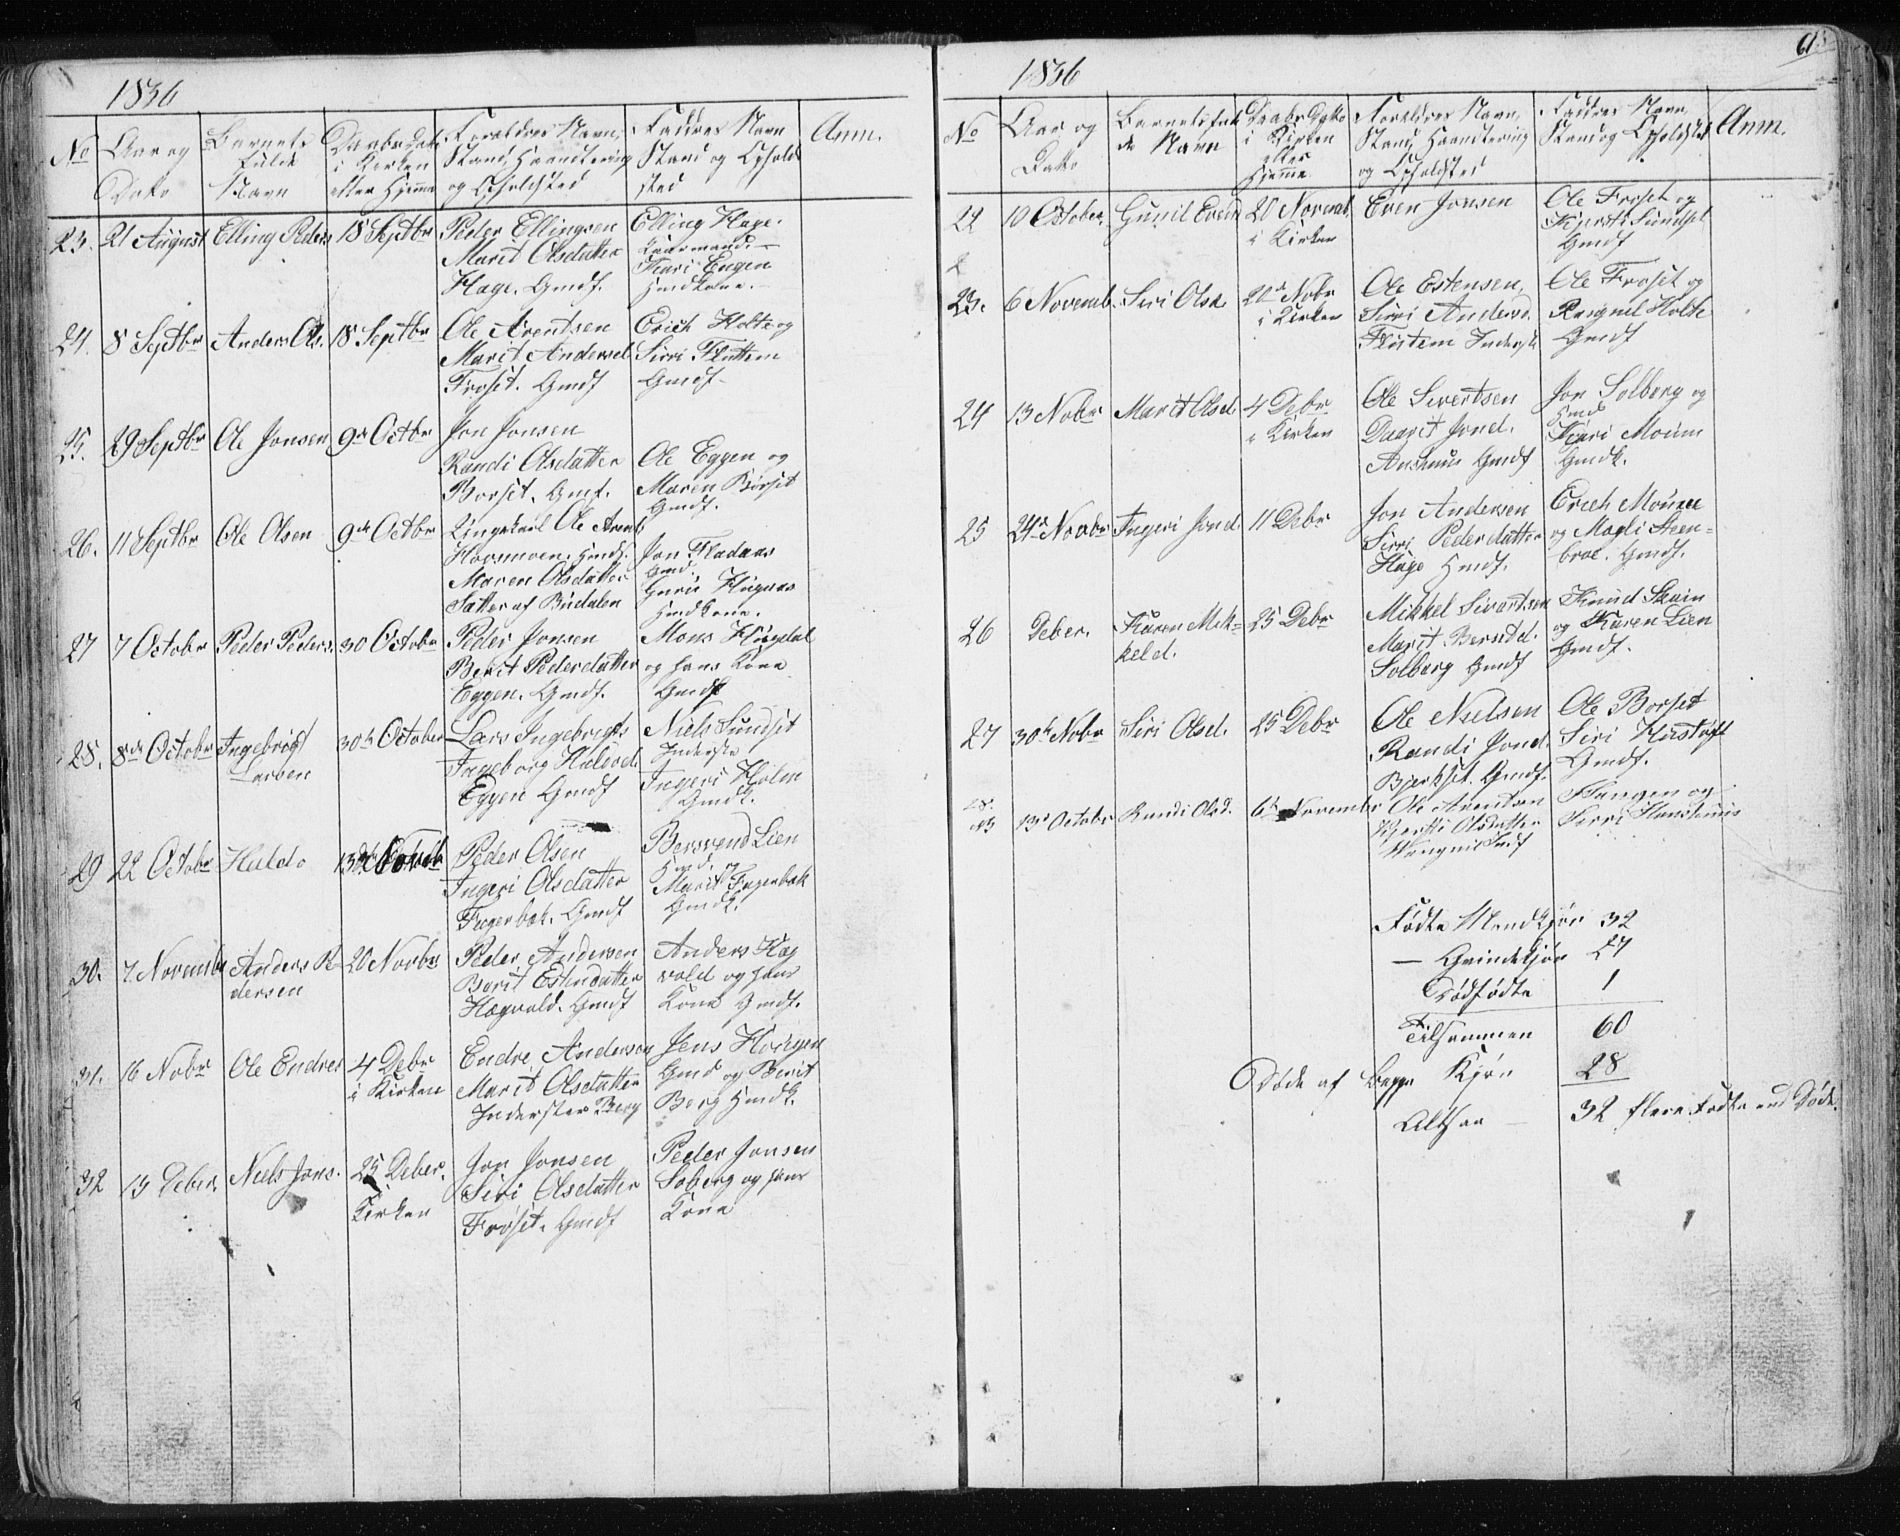 1836
No
Aar og
Dato
Barnets
fulde
Navn
Daabs Dato
i Kirken
eller Hjemme
Forældres Navn,
Stand, Haandtering
og Opholdsted
Faddres Navn
Stand og Ophold
sted
Anm.
23. 21 August Elling Peders 18 Septbr
Peder Ellingsen
Marit Olsdatter
Hage. Gmdf.
Elling Hage.
Kaarmand.
Kari Engen
Gmdkone.
24. 8 Septbr Anders Ols. 18 Septbr
Ole Arentsen
Marit Andersd.
Froset. Gmdf
Erich Holte og
Sirri Flottem
Gmdf.
25. 29 Septbr Ole Jonsen 9de Octbr
Jon Jonsen
Randi Olsdatter
Borset. Gmf.
Ole Eggen og
Maren Börset
Gmdf.
26. 11 Septbr Ole Olsen 9de Octbr
Ungekarl Ole Arents
Hovsmoen. Hmdf.
Maren Olsdatter
Sætter af Budalen
Jon Fladaas
Gmd.
Guru Haugnas
Hmdkone.
27 7 October Peder Peders. 30 October
Peder Jonsen
Berit Pederdatter
Eggen. Gmdf.
Mons Haugdal
og hans Kone
Gmdf
28. 8de October Ingebrigt
Larsen
30te October
Lars Ingebrigts
Ingeborg Halvd.
Eggen Gmdf
Niels Sundset
Inderste
Ingeri Holm
Gmdk.
29 22 October Haldo 13de Novbr
Peder Olsen
Ingeri Olsdatter
Fagerbak. Gmdf
Bersvend Lien
Gmd. og
Marit Fagerbak
Gmdk.
30. 7 November Anders Pe-
dersen
20 Novbr
Peder Andersen
Berit Estendatter
Hægvold. Gmdf
Anders Hæg
vold og hans
Kone Gmdf.
31. 16 Nobr Ole Endres 4 Debr
i Kirken
Endre Andersen
Marit Olsdatter
Inderster Berg
Jens Horgen
Gmd og Berit
Berg Hmdk.
32 13 Deber. Niels Jons. 25 Deber.
Kirken
Jon Jonsen
Siri Olsdatter
Fröset. Gmdf
Peder Jonsen
Soberg og hans
Kone
1836
No
Aar og
Dato
Barnets ful
de Navn
Daabs Dato
i Kirken
eller
Hjemme
Forældres Navn,
Stand, Haandtering
og Opholdsted
Faddres Navn,
Stand og Opholdsted
Anm.
22 10 October. Gunil Evend 20 Novemb.
i Kirken
Even Jonsen
Ole Froset og
Kjersti Sundset
Gmdf
23. 6 Novemb. Siri Olsd. 20de Nobr
i Kirken
Ole Estensen,
Sirri Andersd.
Flottem Inderst
Ole Froset og
Ragnil Holte
Gmdf
24 13 Nobr Marit Olsd. 4 Debr
i Kirken
Ole Sivertsen
Daarit Jond.
Aushuus Gmdf
Jon Solberg og
Gmd
Kari Moum
Gmdk.
25 24de Novbr Ingeri Jond. 11 Debr
Jon Andersen
Sirri Pederdatter
Hage Hmdf.
Erich Moum
og Magli Steen-
broe. Gmdf.
26 Deber. Karen Mik-
keld.
25 Debr
Mikkel Sivertsen
Marit Berntd.
Solberg Gmdf
Knud Skum
og Karen Lien
Gmdf.
27 30te Nobr Siri Olsd. 25 Debr
Ole Nielsen
Randi Jond.
Bjerkset. Gmdf.
Ole Borset
Siri Hustoft
Gmdf.
28. 13de October Randi Olsd. 6te November
Ole Arentsen
Kjersti Olsdatter
Stangen og
Sirri
Fødte Mandkjøn 32
— Qvindekjøn 27
Dödfødte 1
Tilsammen 60
Døde af begge Kjøn 28
Altsaa — 32 flere Fødte end Døde.